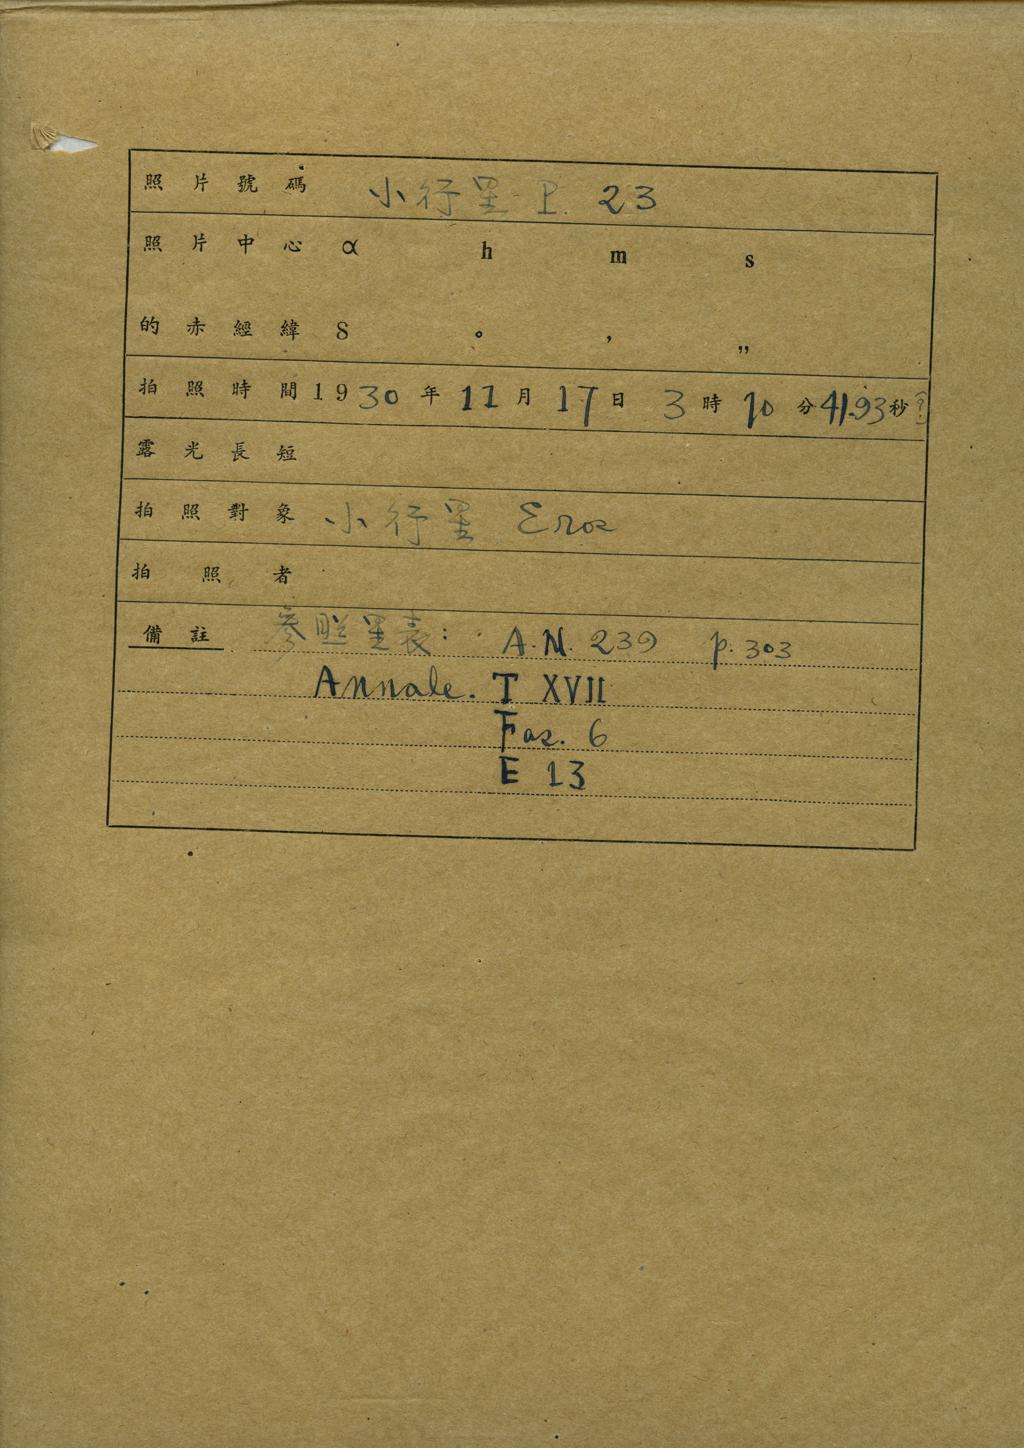 照片號碼 小行星 P. 23
照片中心 α h m s
的赤經緯 δ ° ′ ″
拍照時間 1930年 11月 17日 3時 10分 41.93秒(?)
露光長短
拍照對象 小行星 Eros
拍照者
備註 參照星表: A.N. 239 p. 303
Annale. T XVII
Fas. 6
E 13